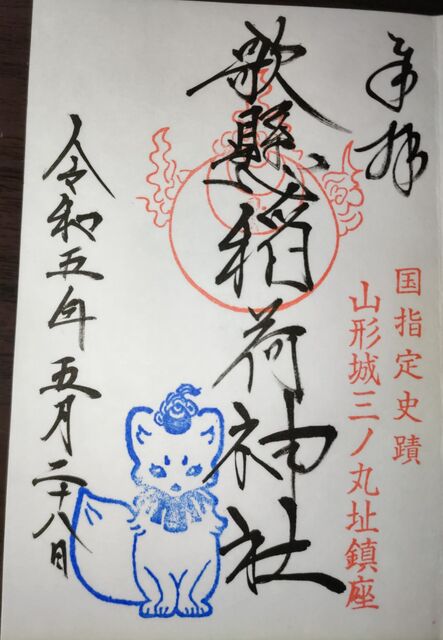 奉拝
国指定史蹟
山形城三ノ丸址鎮座
歌懸稲荷神社
令和五年五月二十八日